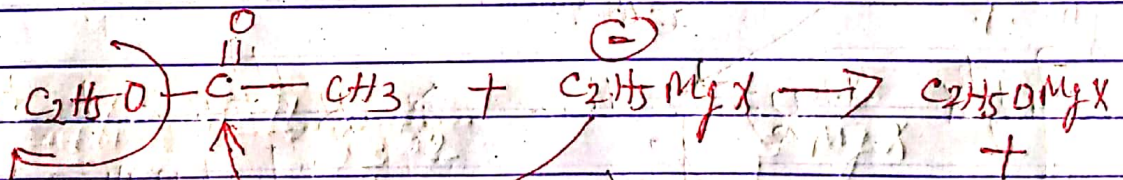 O
||
C2H5O — C — CH3 + C2H5MgX → C2H5OMgX
+